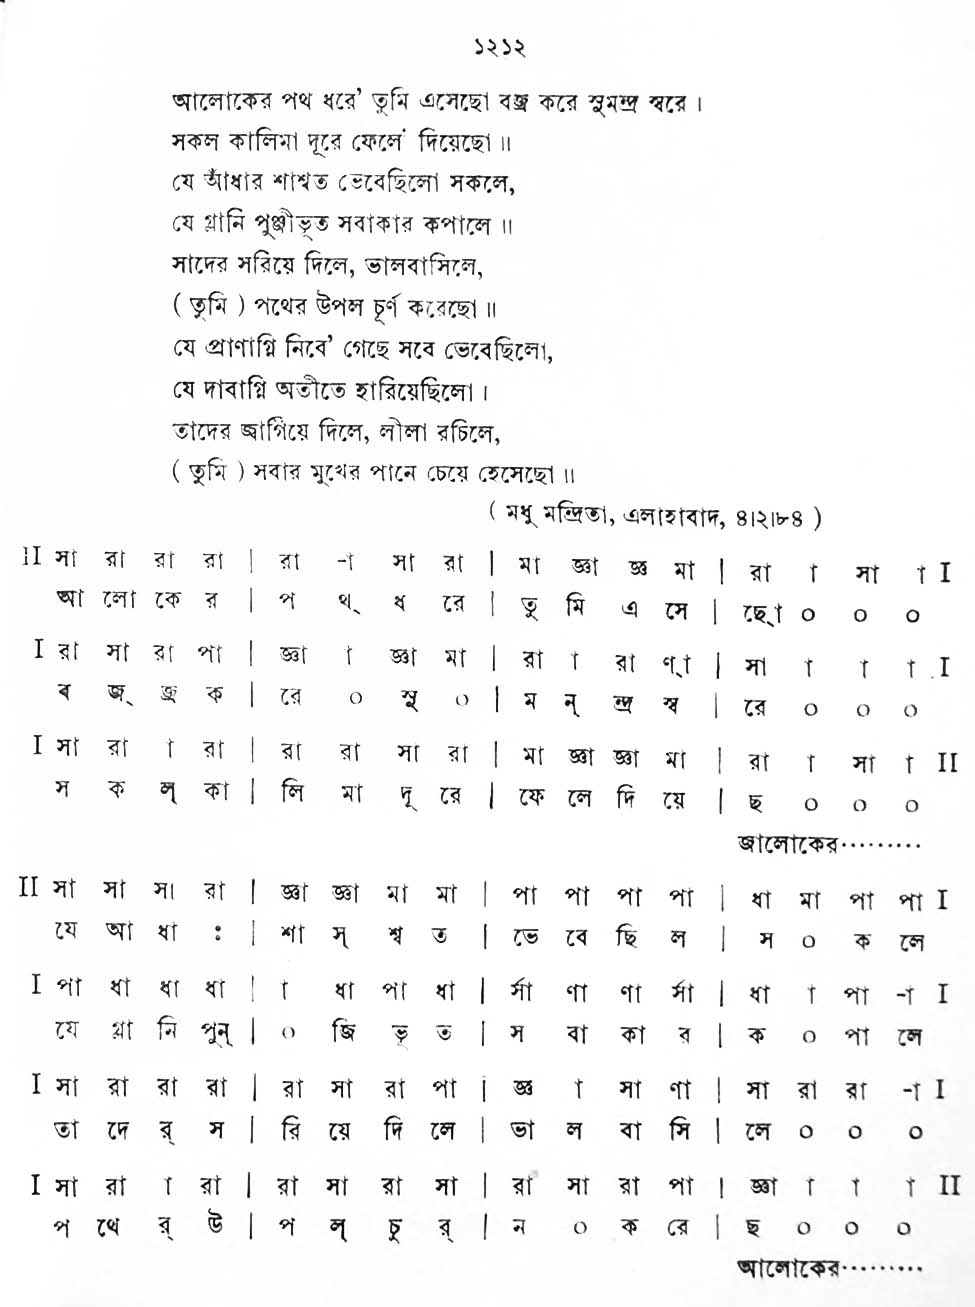 ১২১২
আলোকের পথ ধরে' তুমি এসেছো বজ্র করে সুমন্দ্র স্বরে ।
সকল কালিমা দূরে ফেলে' দিয়েছো ॥
যে আঁধার শাশ্বত ভেবেছিলো সকলে,
যে গ্লানি পুঞ্জীভূত সবাকার কপালে ॥
সাদের সরিয়ে দিলে, ভালবাসিলে,
( তুমি ) পথের উপল চূর্ণ করেছো ॥
যে প্রাণাগ্নি নিবে' গেছে সবে ভেবেছিলো,
যে দাবাগ্নি অতীতে হারিয়েছিলো ।
তাদের জাগিয়ে দিলে, লীলা রচিলে,
( তুমি ) সবার মুখের পানে চেয়ে হেসেছো ॥
( মধু মন্দ্রিতা, এলাহাবাদ, ৪।২।৮৪ )
II সা রা রা রা | রা -া সা রা | মা জ্ঞা জ্ঞ মা | রা া সা া I
আ লো কে র | প থ্ ধ রে | তু মি এ সে | ছো ০ ০ ০
I রা সা রা পা | জ্ঞা া জ্ঞা মা | রা া রা ণ্া | সা া া া I
ব জ্ জ্র ক | রে ০ সু ০ | ম ন্ দ্র স্ব | রে ০ ০ ০
I সা রা া রা | রা রা সা রা | মা জ্ঞা জ্ঞা মা | রা া সা া II
স ক ল্ কা | লি মা দূ রে | ফে লে দি য়ে | ছ ০ ০ ০
আলোকের·········
II সা সা সা রা | জ্ঞা জ্ঞা মা মা | পা পা পা পা | ধা মা পা পা I
যে আ ধা ঃ | শা স্ শ্ব ত | ভে বে ছি ল | স ০ ক লে
I পা ধা ধা ধা | া ধা পা ধা | র্সা ণা ণা র্সা | ধা া পা -া I
যে গ্লা নি পুন্ | ০ জি ভূ ত | স বা কা র | ক ০ পা লে
I সা রা রা রা | রা সা রা পা | জ্ঞ া সা ণা | সা রা রা -া I
তা দে র্ স | রি য়ে দি লে | ভা ল বা সি | লে ০ ০ ০
I সা রা া রা | রা সা রা সা | রা সা রা পা | জ্ঞা া া া II
প থে র্ উ | প ল্ চু র্ | ন ০ ক রে | ছ ০ ০ ০
আলোকের·········